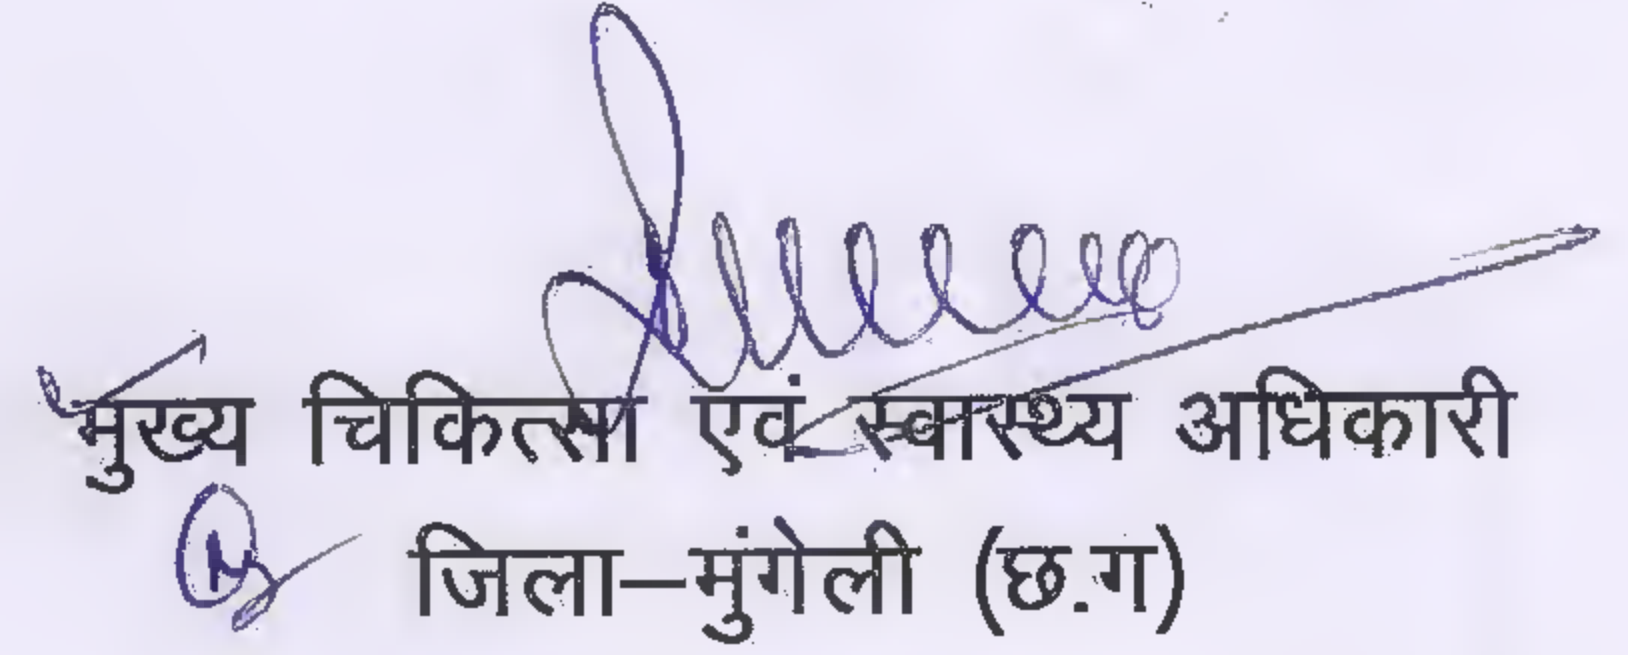 मुख्य चिकित्सा एवं स्वास्थ्य अधिकारी
जिला–मुंगेली (छ.ग)